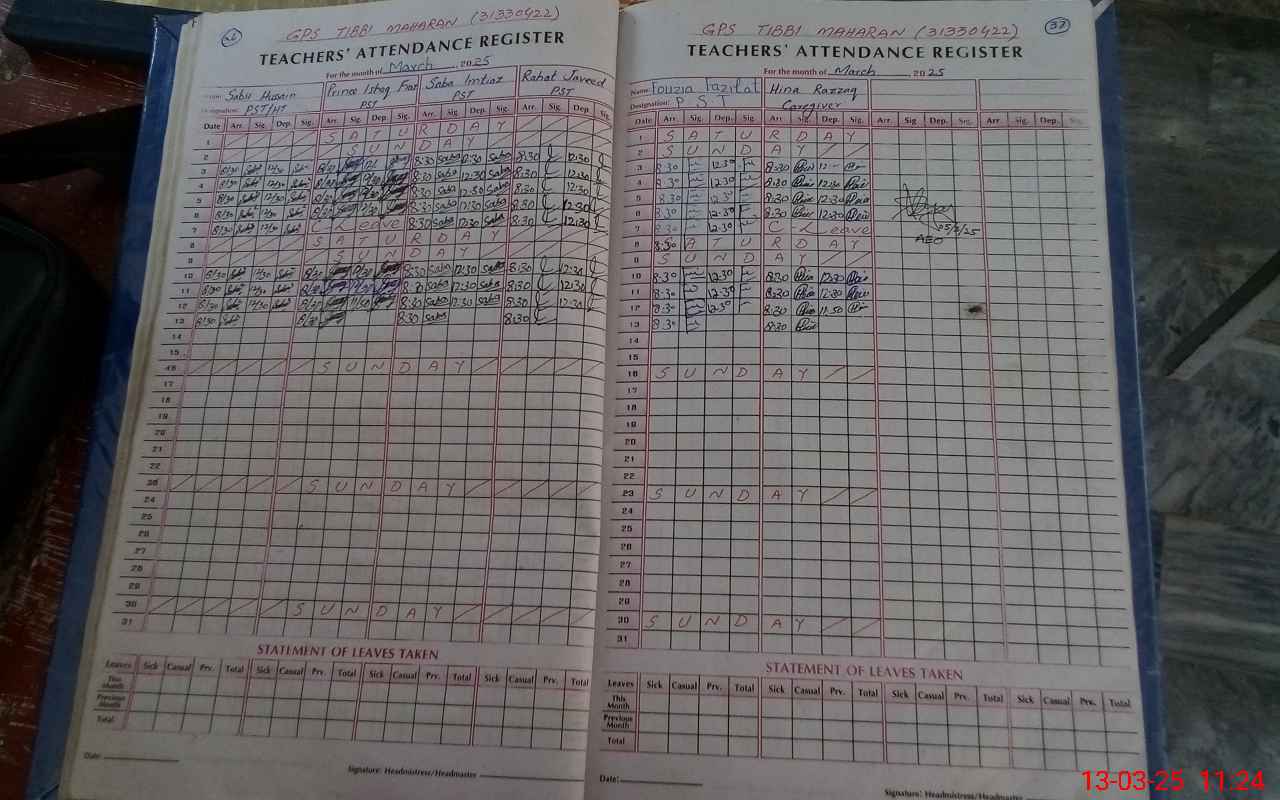 GPS TIBBI MAHARAN (31330422)
TEACHERS' ATTENDANCE REGISTER
For the month of March 2025
Sabir Hussain Prince Ishaq Saba Imtiaz Rahat Javeed
Designation: PST/HT PST PST PST
Date Arr. Sig. Dep. Sig. Arr. Sig. Dep. Sig. Arr. Sig. Dep. Sig. Arr. Sig. Dep Sig.
1 SATURDAY
2 SUNDAY
3 8/30 12/30 8/30 8:30 Saba 12:30 Saba 8:30 12:30
4 8/30 12/30 8/30 8:30 Saba 12:30 Saba 8:30 12:30
5 8/30 12/30 8/30 8:30 Saba 12:30 Saba 8:30 12:30
6 8/30 12/30 8/30 8:30 Saba 12:30 Saba 8:30 12:30
7 8/30 12/30 C-Leave 8:30 Saba 12:30 Saba 8:30 12:30
8 SATURDAY
9 SUNDAY
10 8/30 12/30 8/30 8:30 Saba 12:30 Saba 8:30 12:30
11 8/30 12/30 8/30 8:30 Saba 12:30 Saba 8:30 12:30
12 8/30 12/30 8/30 11/50 8:30 Saba 12:30 Saba 8:30 12:30
13 8/30 8/30 8:30 Saba 8:30
14
15
16 SUNDAY
17
18
19
20
21
22
SUNDAY
24
25
26
27
28
29
30 SUNDAY
31
STATEMENT OF LEAVES TAKEN
Leaves Sick Casual Prv. Total Sick Casual Prv. Total Sick Casual Prv. Total Sick Casual Prv. Total
This Month
Previous Month
Total
Date:
Signature: Headmistress/Headmaster
37
GPS TIBBI MAHARAN (31330422)
TEACHERS' ATTENDANCE REGISTER
For the month of March 2025
Name: Fouzia Fazilat Hina Razzaq
Designation: PST Caregiver
Date Arr. Sig. Dep. Sig. Arr. Sig. Dep. Sig. Arr. Sig Dep. Sig. Arr. Sig. Dep. Sig.
1 SATURDAY
2 SUNDAY
3 8:30 12:30 8:30
4 8:30 12:30 8:30 12:30
5 8:30 12:30 8:30 12:30
6 8:30 12:30 8:30 12:30
7 8:30 12:30 C-Leave
05/3/25
AEO
8 SATURDAY
9 SUNDAY
10 8:30 12:30 8:30 12:30
11 8:30 12:30 8:30 12:30
12 8:30 12:30 8:30 11:50
13 8:30 8:30
14
15
16 SUNDAY
17
18
19
20
21
22
23 SUNDAY
24
25
26
27
28
29
30 SUNDAY
31
STATEMENT OF LEAVES TAKEN
Leaves Sick Casual Prv. Total Sick Casual Prv. Total Sick Casual Prv. Total Sick Casual Prv. Total
This Month
Previous Month
Total
Date:
Signature: Headmistress/Headmaster
13-03-25 11.24